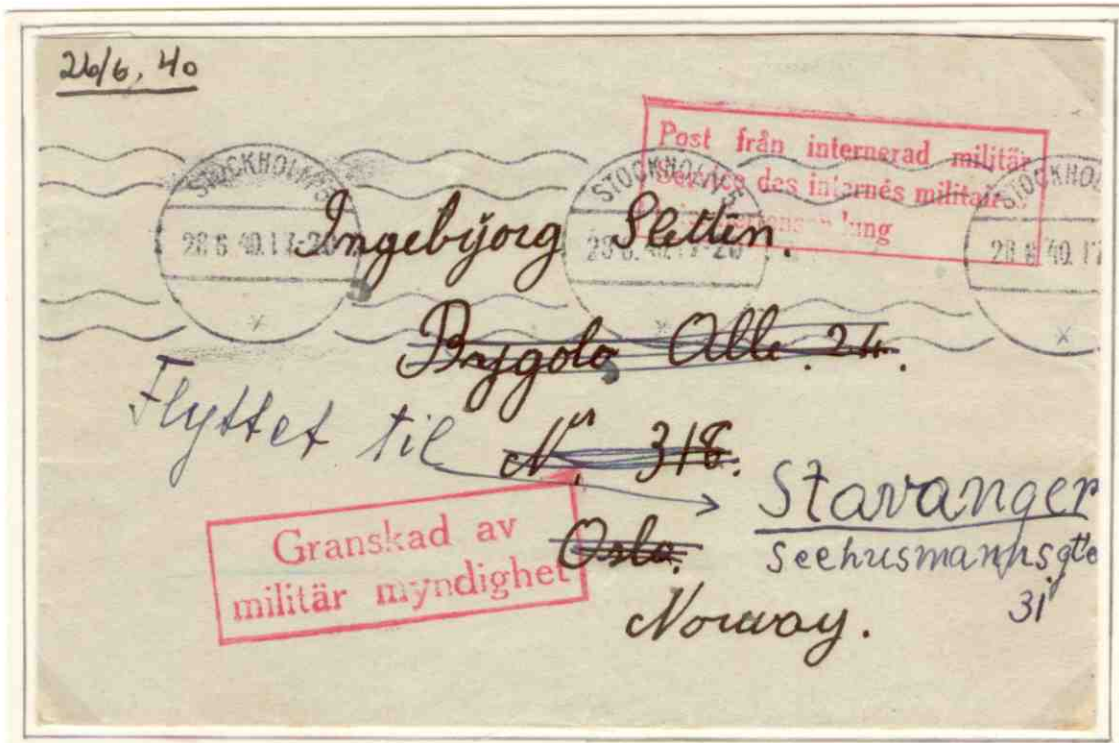 26/6, 40
Post från internerad militär
Service des internés militaires
lung
STOCKHOLM 5
28.6.40.17-20
STOCKHOLM 5
28.6.40.17-20
STOCKHOL
28.6.40.17
Ingebijorg Sletten.
Bygolo Alle. 24.
Flyttet til
N. 318.
Stavanger
Oslo.
31
Granskad av
militär myndighet
Norway.